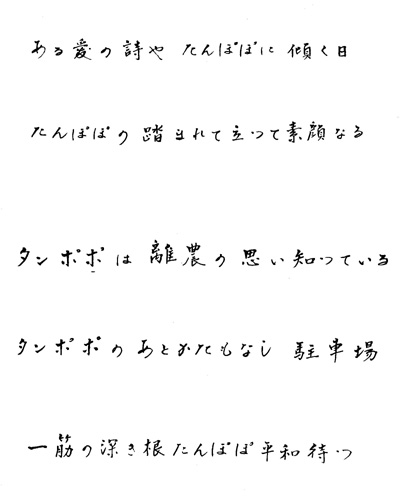 ある愛の詩や たんぽぽに 傾く日
たんぽぽの踏まれて立つて素顔なる
タンポポは離農の思い知つている
タンポポのあとかたもなし 駐車場
一筋の深き根たんぽぽ平和待つ